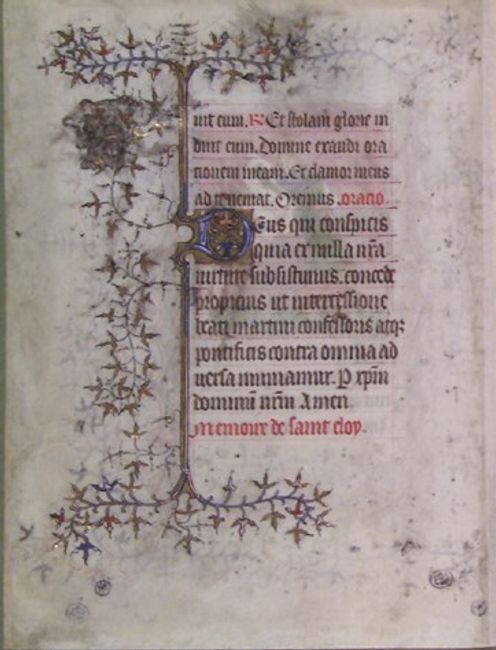 uit eum. R Et stolam glorie in
duit eum. Domine exaudi ora
tionem meam. Et clamor meus
ad te veniat. Oremus. oratio
Deus qui conspicis
quia ex nulla nr̄a
virtute subsistimus. concede
propicius ut intercessione
beati martini confessoris atq;
pontificis contra omnia ad
versa muniamur. P xp̄m
dominū nr̄m Amen.
Memoire de saint eloy.